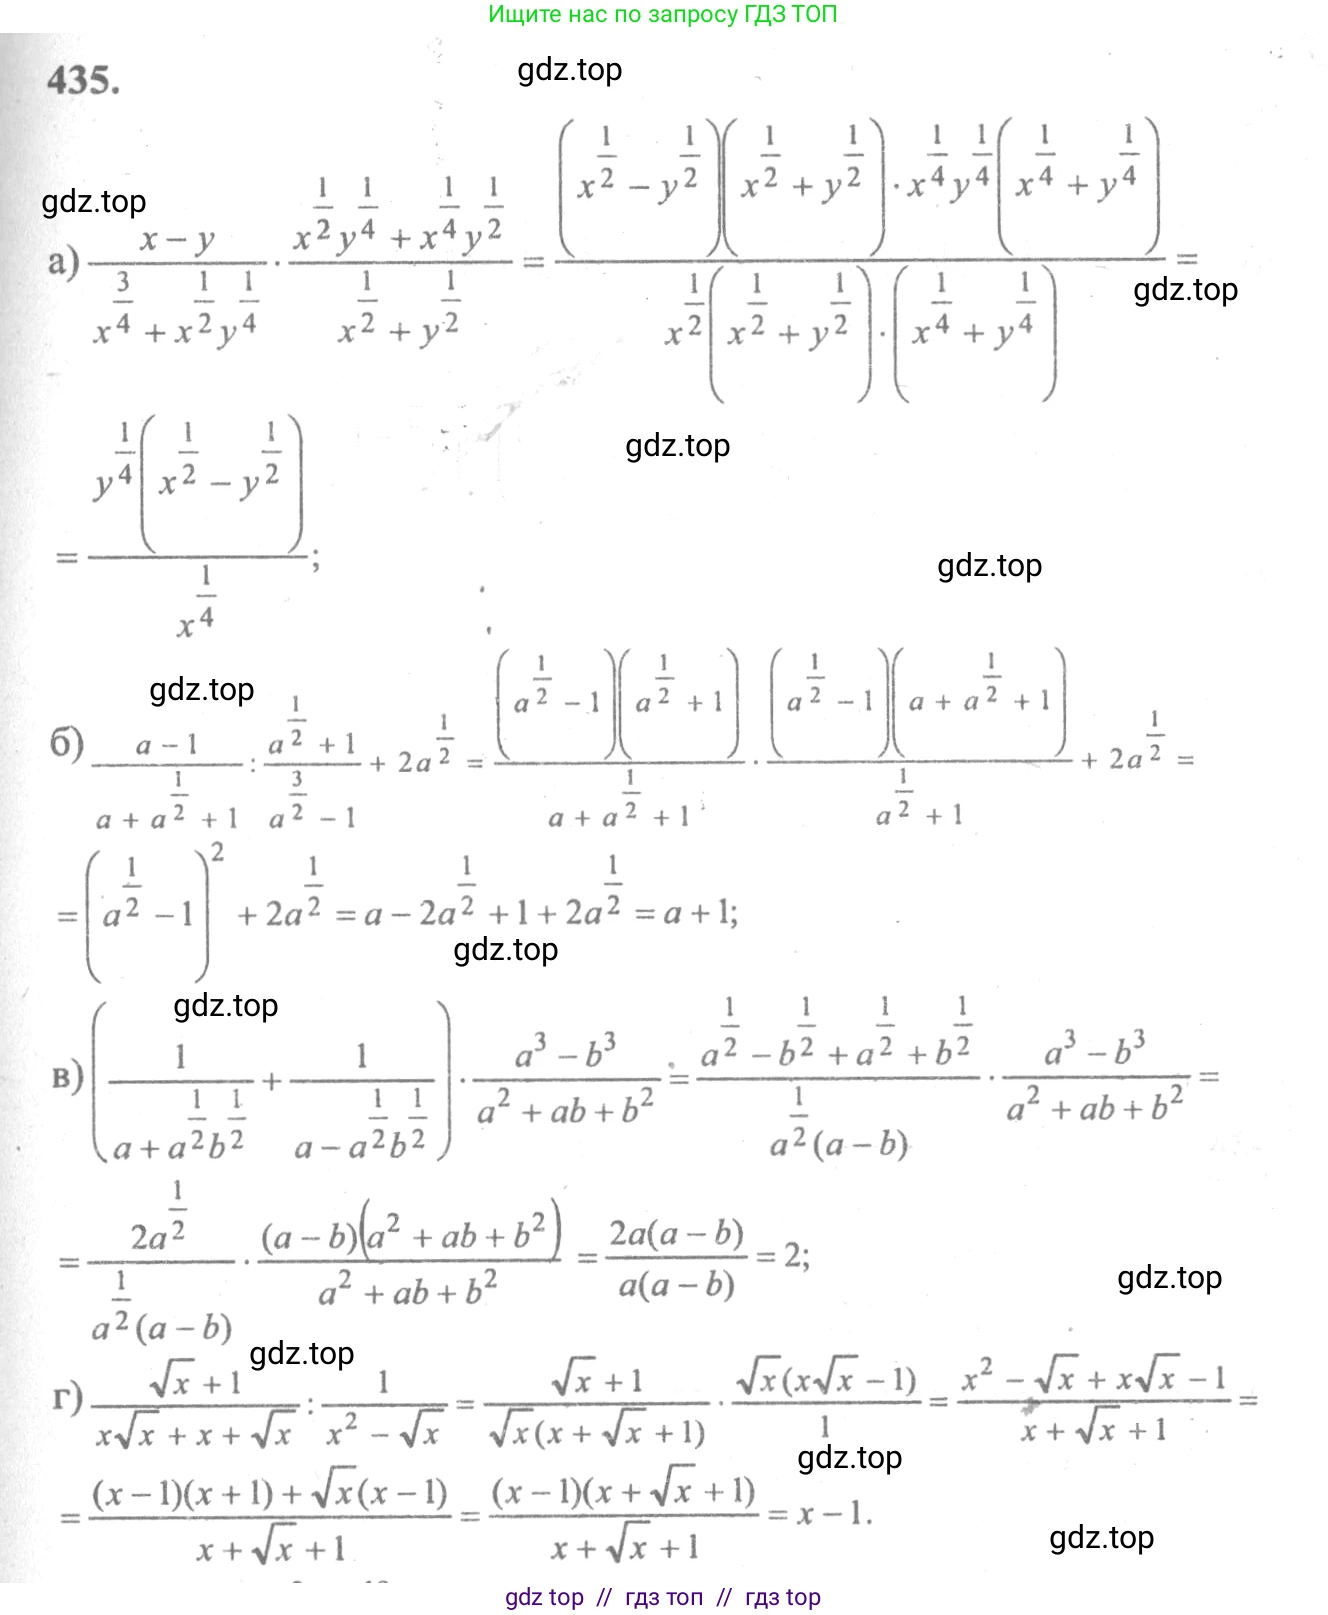 Ищите нас по запросу ГДЗ ТОП
435.
gdz.top
gdz.top
а) \frac{x-y}{x^{\frac{3}{4}}+x^{\frac{1}{2}}y^{\frac{1}{4}}} \cdot \frac{x^{\frac{1}{2}}y^{\frac{1}{4}}+x^{\frac{1}{4}}y^{\frac{1}{2}}}{x^{\frac{1}{2}}+y^{\frac{1}{2}}} = \frac{\left(x^{\frac{1}{2}}-y^{\frac{1}{2}}\right)\left(x^{\frac{1}{2}}+y^{\frac{1}{2}}\right) \cdot x^{\frac{1}{4}}y^{\frac{1}{4}}\left(x^{\frac{1}{4}}+y^{\frac{1}{4}}\right)}{x^{\frac{1}{2}}\left(x^{\frac{1}{2}}+y^{\frac{1}{2}}\right) \cdot \left(x^{\frac{1}{4}}+y^{\frac{1}{4}}\right)} =
gdz.top
gdz.top
= \frac{y^{\frac{1}{4}}\left(x^{\frac{1}{2}}-y^{\frac{1}{2}}\right)}{x^{\frac{1}{4}}};
gdz.top
gdz.top
б) \frac{a-1}{a+a^{\frac{1}{2}}+1} : \frac{a^{\frac{1}{2}}+1}{a^{\frac{3}{2}}-1} + 2a^{\frac{1}{2}} = \frac{\left(a^{\frac{1}{2}}-1\right)\left(a^{\frac{1}{2}}+1\right)}{a+a^{\frac{1}{2}}+1} \cdot \frac{\left(a^{\frac{1}{2}}-1\right)\left(a+a^{\frac{1}{2}}+1\right)}{a^{\frac{1}{2}}+1} + 2a^{\frac{1}{2}} =
= \left(a^{\frac{1}{2}}-1\right)^2 + 2a^{\frac{1}{2}} = a-2a^{\frac{1}{2}}+1+2a^{\frac{1}{2}} = a+1;
gdz.top
gdz.top
в) \left(\frac{1}{a+a^{\frac{1}{2}}b^{\frac{1}{2}}} + \frac{1}{a-a^{\frac{1}{2}}b^{\frac{1}{2}}}\right) \cdot \frac{a^3-b^3}{a^2+ab+b^2} = \frac{a^{\frac{1}{2}}-b^{\frac{1}{2}}+a^{\frac{1}{2}}+b^{\frac{1}{2}}}{a^{\frac{1}{2}}(a-b)} \cdot \frac{a^3-b^3}{a^2+ab+b^2} =
= \frac{2a^{\frac{1}{2}}}{a^{\frac{1}{2}}(a-b)} \cdot \frac{(a-b)\left(a^2+ab+b^2\right)}{a^2+ab+b^2} = \frac{2a(a-b)}{a(a-b)} = 2;
gdz.top
gdz.top
г) \frac{\sqrt{x}+1}{x\sqrt{x}+x+\sqrt{x}} : \frac{1}{x^2-\sqrt{x}} = \frac{\sqrt{x}+1}{\sqrt{x}(x+\sqrt{x}+1)} \cdot \frac{\sqrt{x}(x\sqrt{x}-1)}{1} = \frac{x^2-\sqrt{x}+x\sqrt{x}-1}{x+\sqrt{x}+1} =
gdz.top
= \frac{(x-1)(x+1)+\sqrt{x}(x-1)}{x+\sqrt{x}+1} = \frac{(x-1)(x+\sqrt{x}+1)}{x+\sqrt{x}+1} = x-1.
gdz.top
gdz top // гдз топ // гдз top